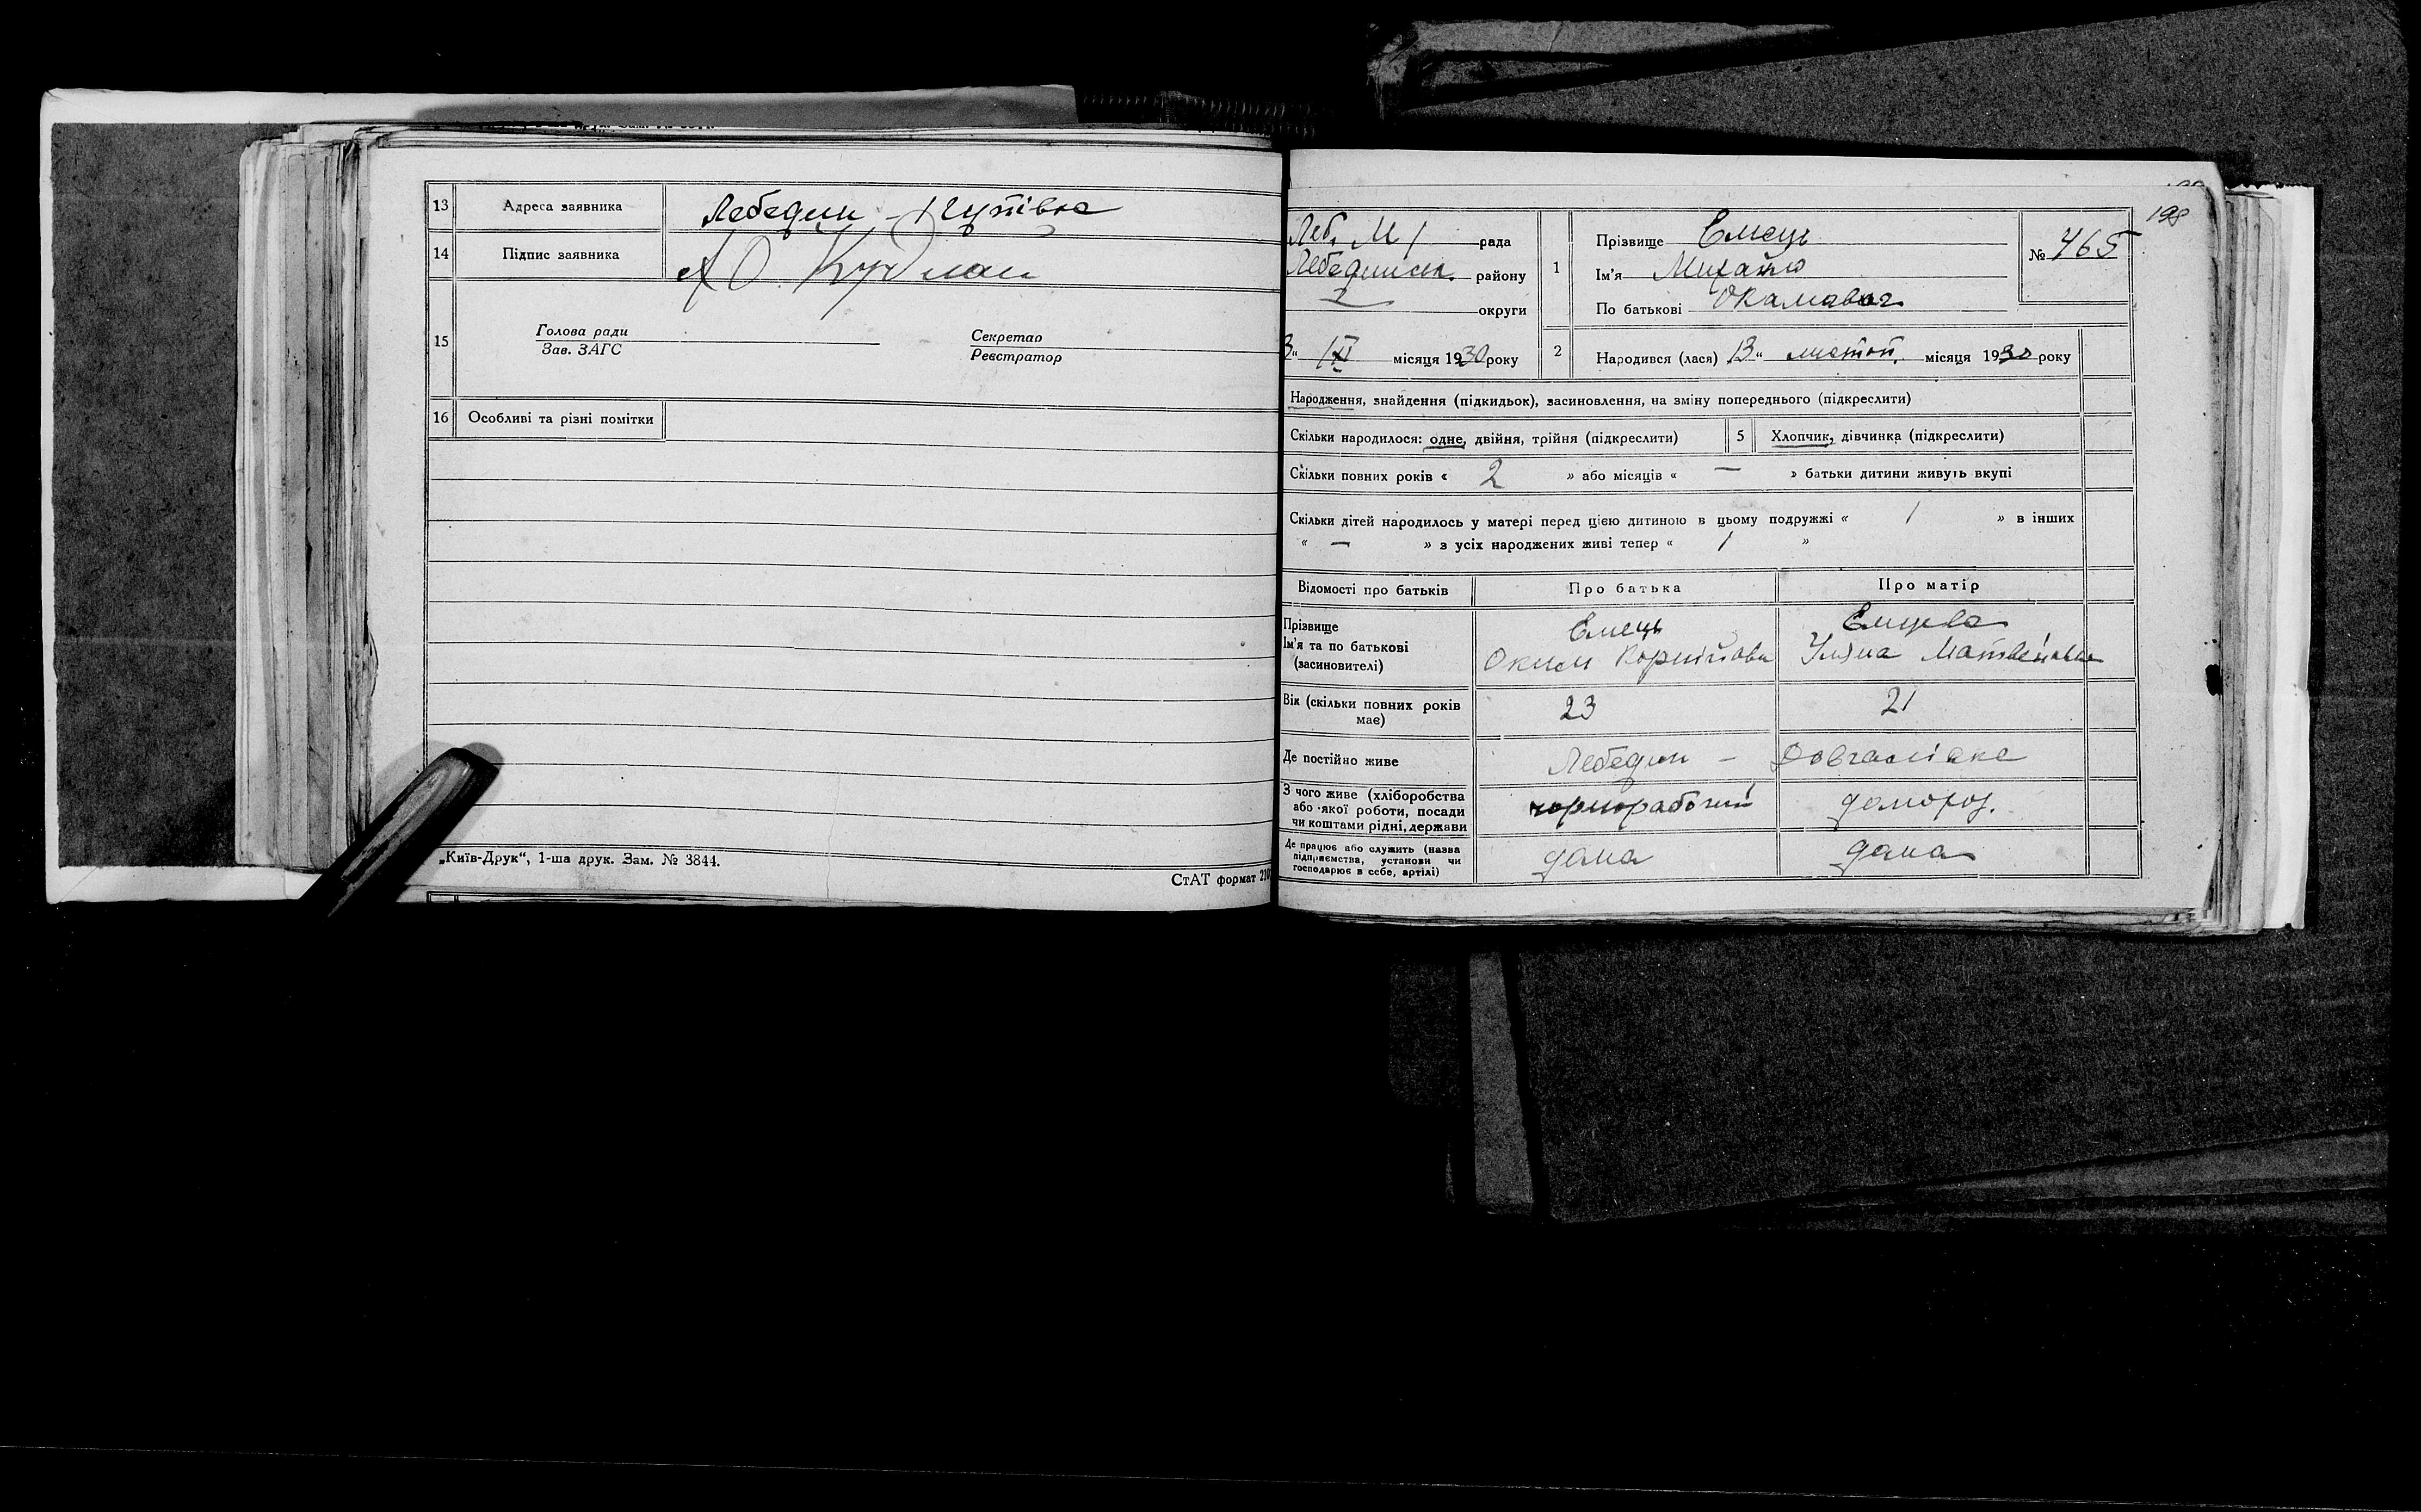 13 Адреса заявника Лебедин -
14 Підпис заявника
15 Голова ради Секретар
Зав. ЗАГС Реєстратор
16 Особливі та різні помітки
„Київ-Друк“, 1-ша друк. Зам. № 3844.
СтАТ формат
198
Леб. М рада
Лебединськ. району
округи
3“ XI місяця 1930 року
1 Прізвище Емець
Ім'я Михайло
По батькові
№ 465
2 Народився (лася) 13 “ листоп. місяця 1930 року
Народження, знайдення (підкидьок), засиновлення, на зміну попереднього (підкреслити)
Скільки народилося: одне, двійня, трійня (підкреслити) 5 Хлопчик, дівчинка (підкреслити)
Скільки повних років « 2 » або місяців « — » батьки дитини живуть вкупі
Скільки дітей народилось у матері перед цією дитиною в цьому подружжі « 1 » в інших
« — » з усіх народжених живі тепер « 1 »
Відомості про батьків Про батька Про матір
Прізвище Емець Емцева
Ім'я та по батькові Оким Корнійови Уляна Матвеновна
(засиновителі)
Вік (скільки повних років 23 21
має)
Де постійно живе Лебедин - Довгалівка
З чого живе (хліборобства чорнорабочий домогос.
або якої роботи, посади
чи коштами рідні, держави
Де працює або служить (назва дома дома
підприємства, установи чи
господарює в себе, артілі)